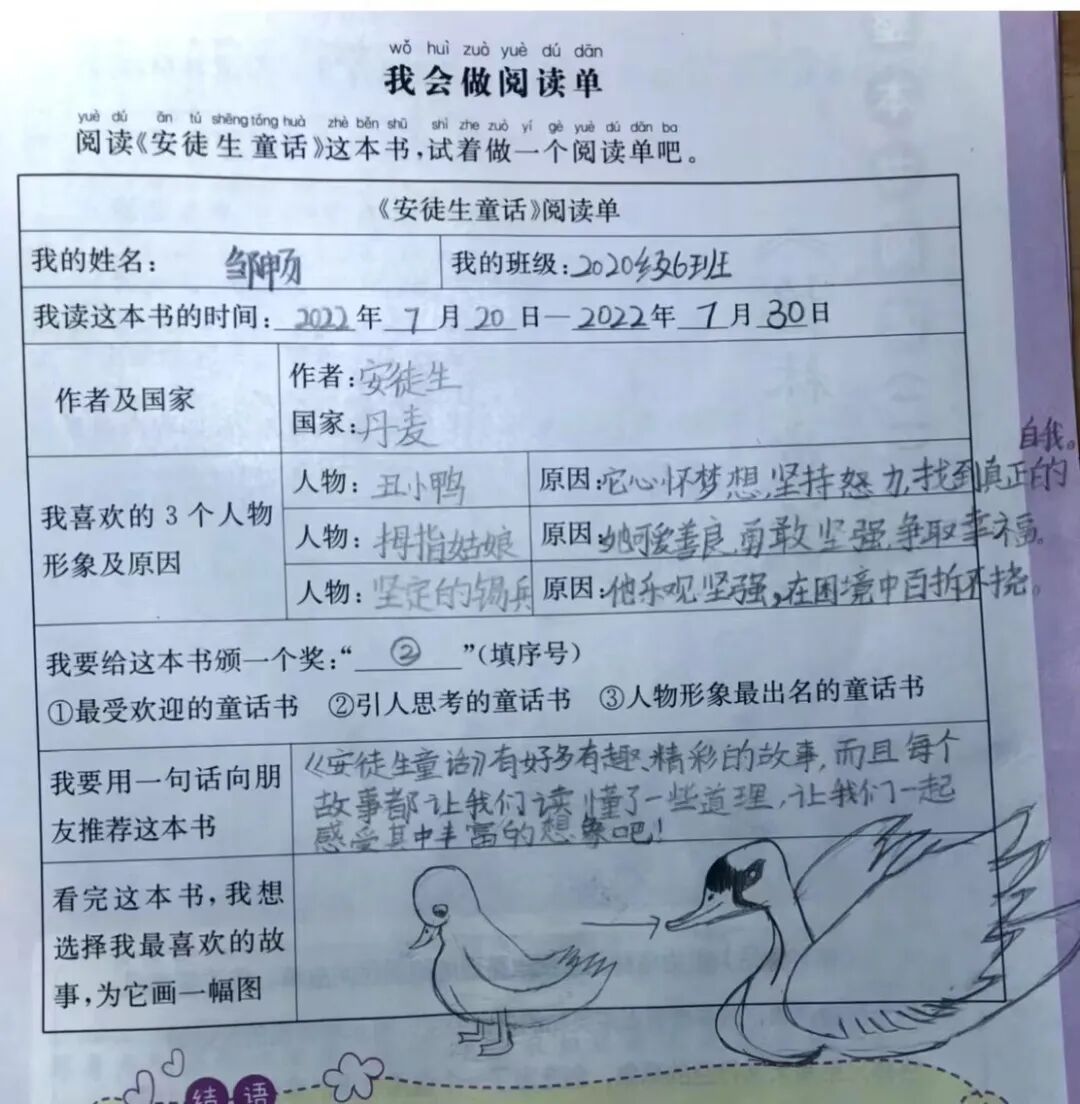 wǒ huì zuò yuè dú dān
我会做阅读单
yuè dú ān tú shēng tóng huà zhè běn shū shì zhe zuò yí gè yuè dú dān ba
阅读《安徒生童话》这本书,试着做一个阅读单吧。
《安徒生童话》阅读单
我的姓名: 邹畅
我的班级:2020级6班
我读这本书的时间: 2022年 7月 20日—2022年 7月30日
作者及国家
作者:安徒生
国家:丹麦
我喜欢的3个人物
形象及原因
人物: 丑小鸭
原因:它心怀梦想,坚持努力,找到真正的
自我。
人物: 拇指姑娘
原因:她可爱善良,勇敢坚强,争取幸福。
人物: 坚定的锡兵
原因:他乐观坚强,在困境中百折不挠。
我要给这本书颁一个奖:“②”(填序号)
①最受欢迎的童话书 ②引人思考的童话书 ③人物形象最出名的童话书
我要用一句话向朋
友推荐这本书
《安徒生童话》有好多有趣、精彩的故事,而且每个
故事都让我们读懂了一些道理,让我们一起
感受其中丰富的想象吧!
看完这本书,我想
选择我最喜欢的故
事,为它画一幅图
结语